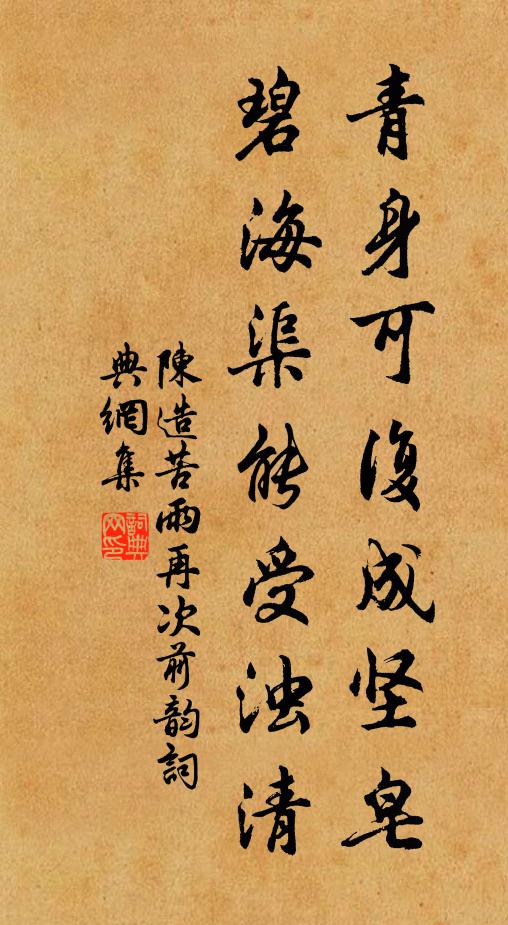 青身可復成坚皂
碧海渠能受浊清
陳造苦雨再次前韵詞
典網集
詞典网印